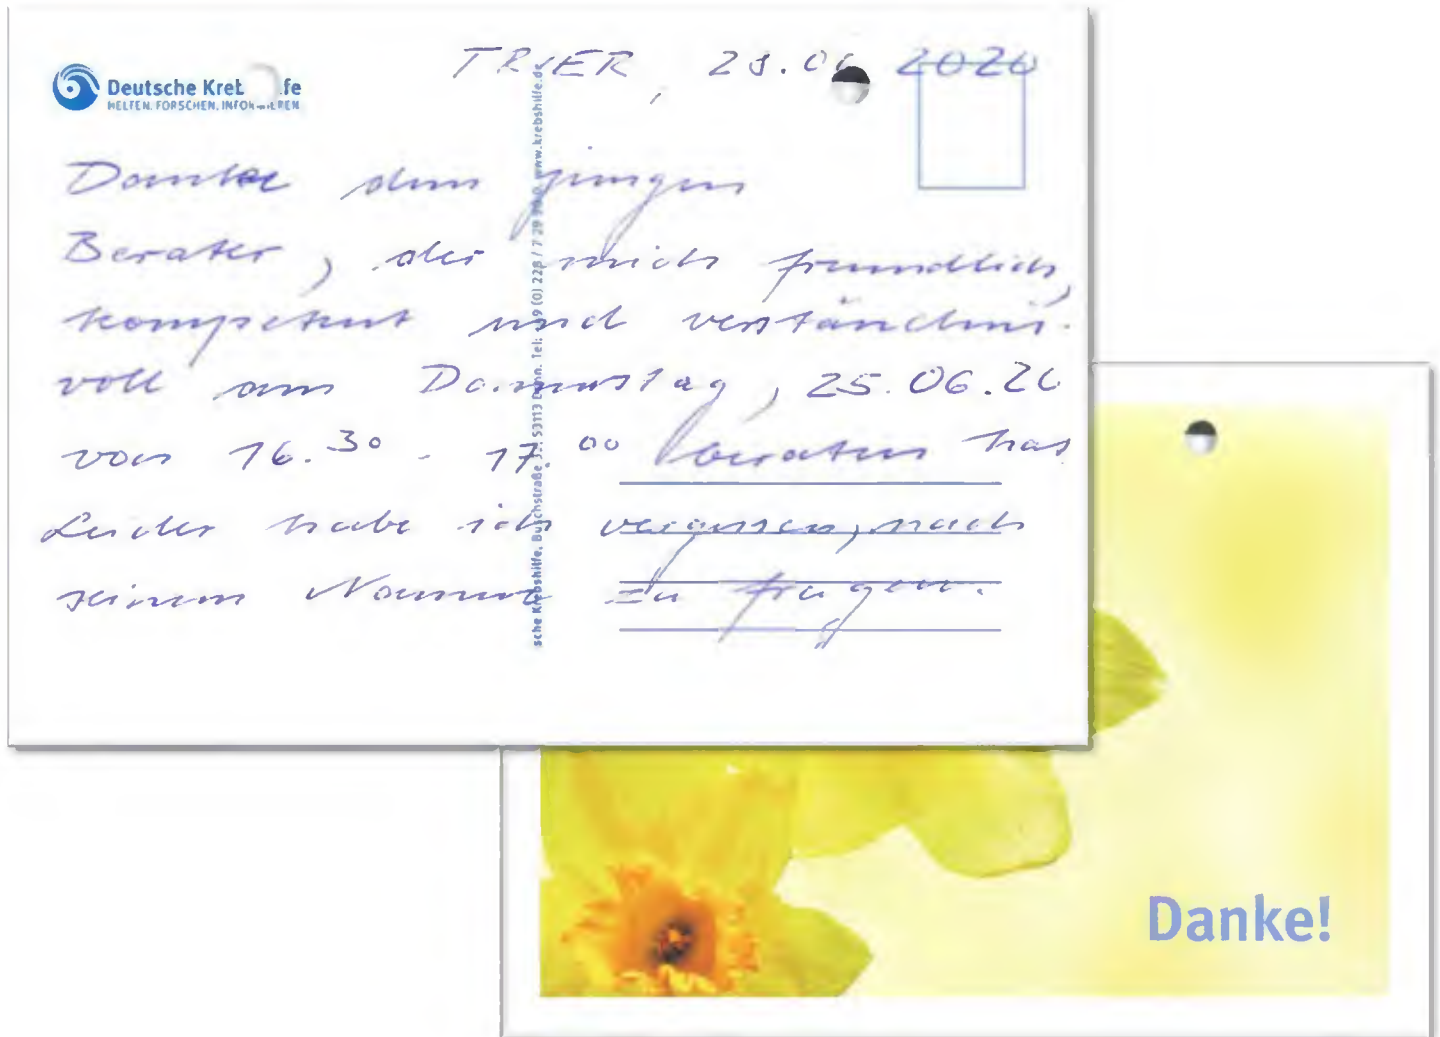 Deutsche Kreb fe
HELFEN. FORSCHEN. INFORMIEREN
TRIER, 28.06 2020
Danke dem jungen
Berater, der mich freundlich,
kompetent und verständnis-
voll am Donnerstag, 25.06.20
von 16.30 - 17.00 beraten hat
Leider habe ich vergessen, nach
seinem Namen zu fragen.
sche Krebshilfe, Buschstraße 53113 Bonn. Tel: (0) 228 / 7 29 www.krebshilfe.de
Danke!